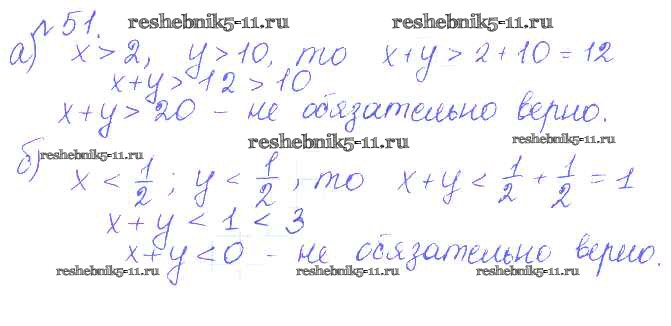 №51. reshebnik5-11.ru reshebnik5-11.ru
а) x > 2, y > 10, то x+y > 2+10 = 12
x+y > 12 > 10
x+y > 20 - не обязательно верно.
reshebnik5-11.ru
reshebnik5-11.ru reshebnik5-11.ru
б) x < 1/2; y < 1/2, то x+y < 1/2 + 1/2 = 1
x+y < 1 < 3
x+y < 0 - не обязательно верно.
reshebnik5-11.ru reshebnik5-11.ru reshebnik5-11.ru